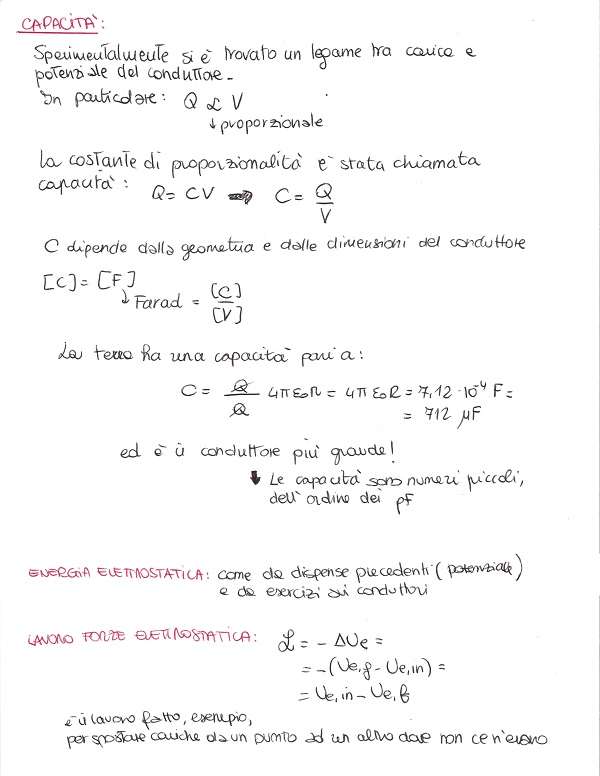 CAPACITÀ:
Sperimentalmente si è trovato un legame tra carica e
potenziale del conduttore.
In particolare: Q ∝ V
↓ proporzionale
La costante di proporzionalità è stata chiamata
capacità: Q = CV ⇒ C = Q/V
C dipende dalla geometria e dalle dimensioni del conduttore
[C] = [F]
↓ Farad = [C]/[V]
La terra ha una capacità pari a:
C = Q/Q 4πε₀R = 4πε₀R = 7,12 · 10⁻⁴ F =
= 712 μF
ed è il conduttore più grande!
⬇ Le capacità sono numeri piccoli,
dell'ordine dei pF
ENERGIA ELETTROSTATICA: come da dispense precedenti (potenziale)
e da esercizi sui conduttori
LAVORO FORZE ELETTROSTATICA: ℒ = - ΔUe =
= -(Ue,f - Ue,in) =
= Ue,in - Ue,f
è il lavoro fatto, esempio,
per spostare cariche da un punto ad un altro dove non ce n'erano